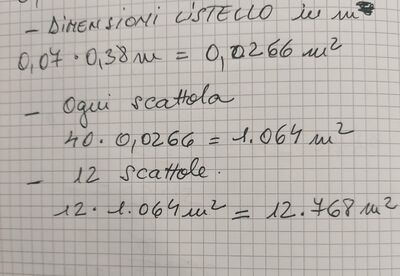 - DIMENSIONI LISTELLO in m
0,07 · 0,38 m = 0,0266 m²
- Ogni scattola
40 · 0,0266 = 1.064 m²
- 12 scattole.
12 · 1.064 m² = 12.768 m²